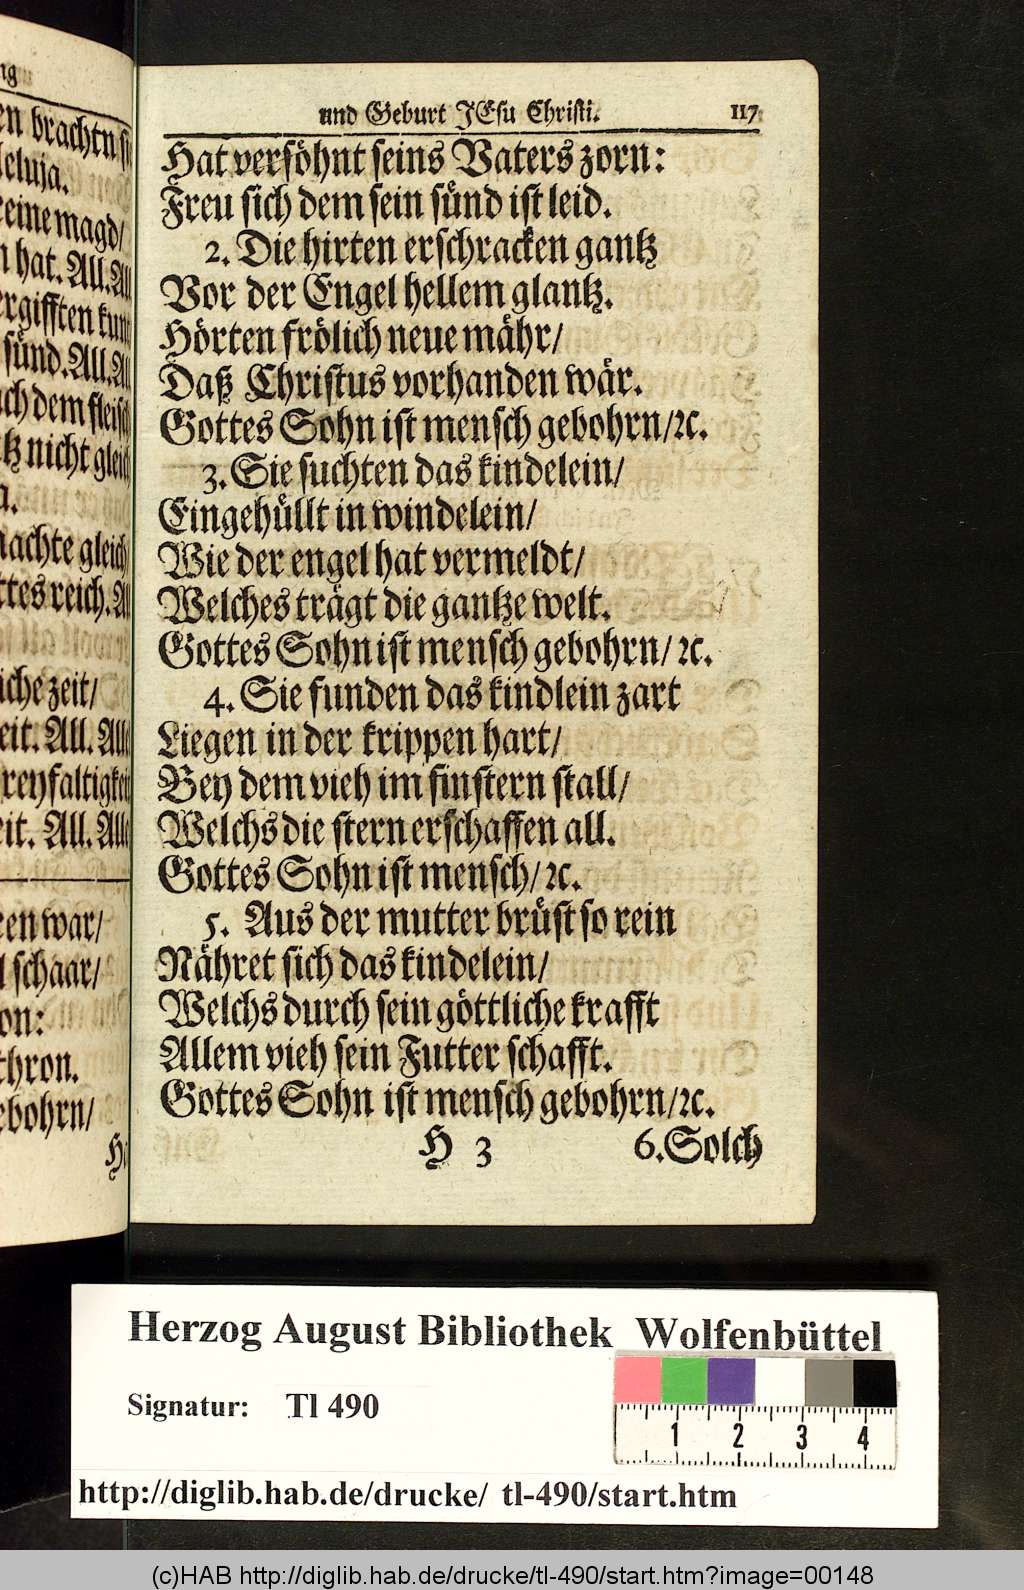 und Geburt JEsu Christi. 117
Hat versöhnt seins Vaters zorn:
Freu sich dem sein sünd ist leid.
2. Die hirten erschracken gantz
Vor der Engel hellem glantz.
Hörten frölich neue mähr/
Daß Christus vorhanden wär.
Gottes Sohn ist mensch gebohrn/ꝛc.
3. Sie suchten das kindelein/
Eingehüllt in windelein/
Wie der engel hat vermeldt/
Welches trägt die gantze welt.
Gottes Sohn ist mensch gebohrn/ ꝛc.
4. Sie funden das kindlein zart
Liegen in der krippen hart/
Bey dem vieh im finstern stall/
Welchs die stern erschaffen all.
Gottes Sohn ist mensch/ ꝛc.
5. Aus der mutter brüst so rein
Nähret sich das kindelein/
Welchs durch sein göttliche krafft
Allem vieh sein Futter schafft.
Gottes Sohn ist mensch gebohrn/ꝛc.
H 3 6. Solch
brachtn
eine magd/
hat. All. All
sünd. All. All
dem fleisch
nicht gleich
machte gleich
reich. All
zeit/
All. Alle
All. Alle
war/
schaar/
thron.
Herzog August Bibliothek Wolfenbüttel
Signatur: Tl 490
1 2 3 4
http://diglib.hab.de/drucke/ tl-490/start.htm
(c)HAB http://diglib.hab.de/drucke/tl-490/start.htm?image=00148